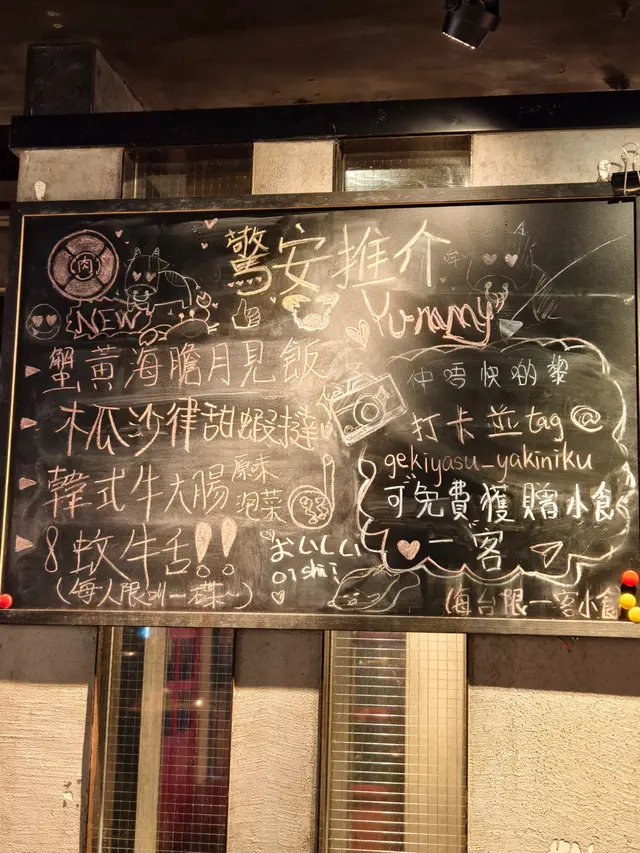 驚安推介
肉
NEW
Yummy
蟹黃海膽月見飯
木瓜沙律甜蝦撻
韓式牛大腸 原味 泡菜
8蚊牛舌!!
(每人限叫一碟~)
おいしい
oishii
仲唔快啲黎
打卡並tag@
gekiyasu_yakiniku
可免費獲贈小食
一客
(每台限一客小食